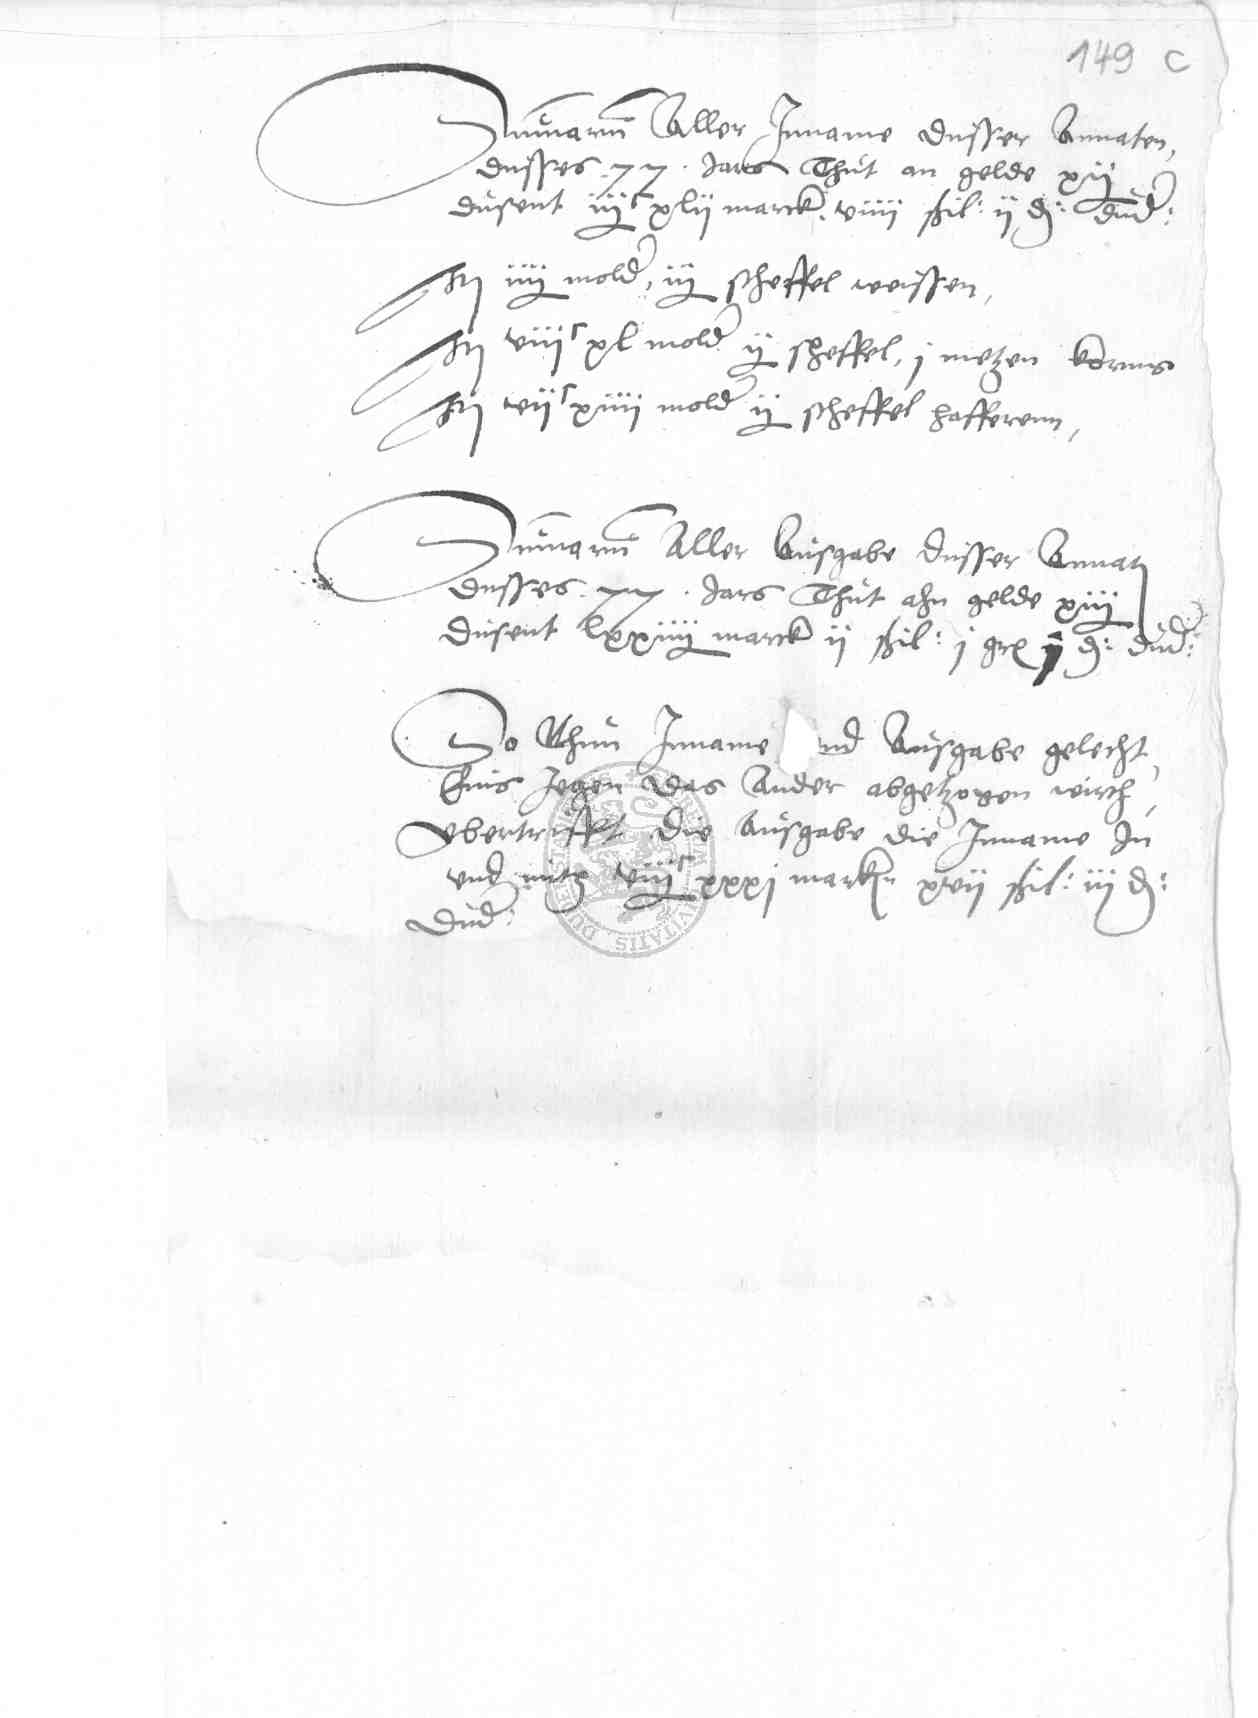 149 c
Summarum̃ Aller Inname dusser Annaten,
dusses . 77 . Jars Thut an gelde xij
dusent iiijᶜ xlij marck. viiij ßil: ij d: dud:
It iiij mold, iij scheffel weissen,
It viijᶜ xl mold ij scheffel, j metzen korns
It vijᶜ xiiij mold ij scheffel hafferenn,
Summarum̃ Aller Ausgabe dusser Annat
dusses . 77 . Jars Thut ahn gelde xiij
dusent lxxiiij marck ij ßil: j gr j d: dud:
So Nhun Inname nd Ausgabe gelecht,
Eins Jegen das Ander abgetzogen wirth,
Ubertrifft die Ausgabe die Inname In
und mitz viijᶜ xxxj mark xvij ßil: iij d:
dud:
CIVITATIS DUDE